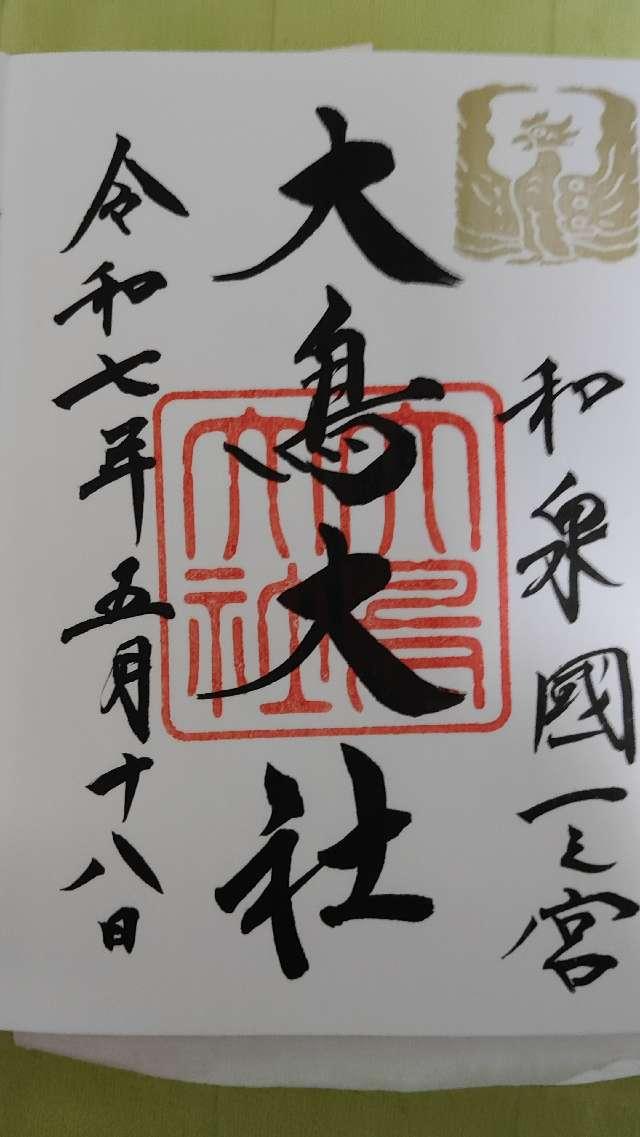 和泉國一之宮
大鳥大社
大鳥大社
令和七年五月十八日